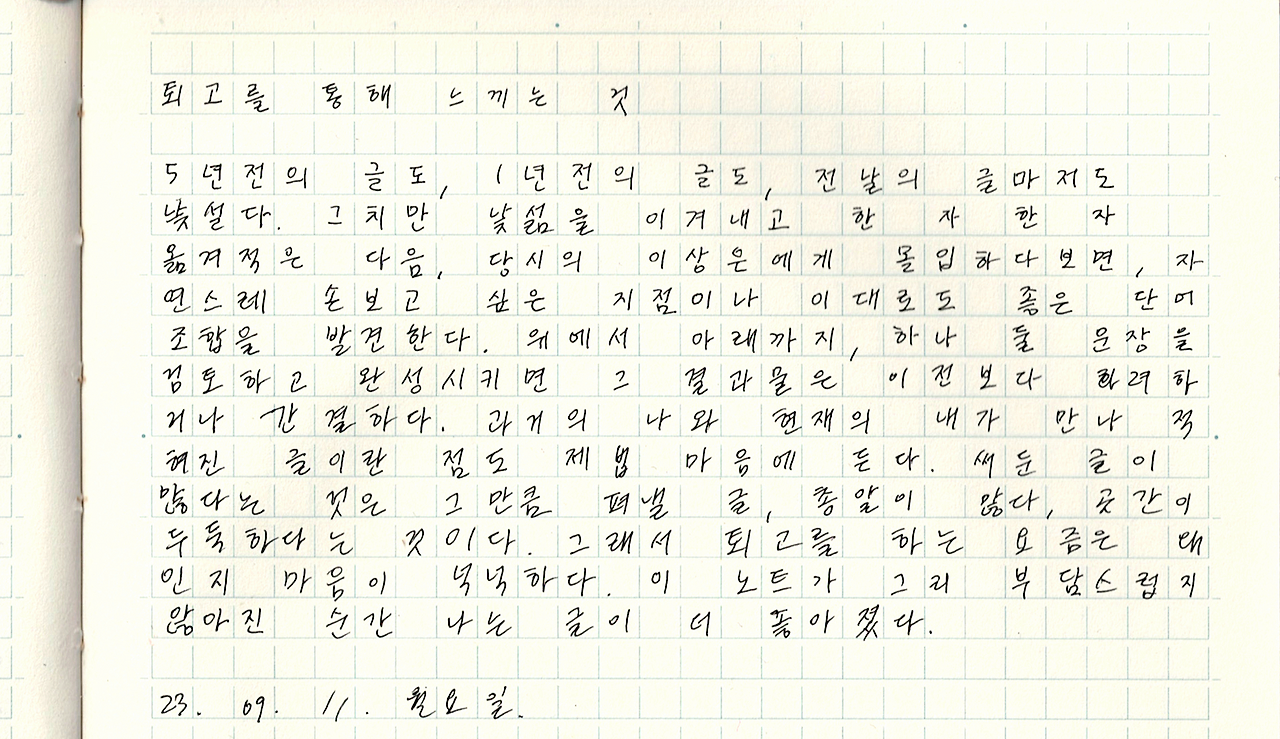 퇴고를 통해 느끼는 것
5년전의 글도, 1년전의 글도, 전날의 글마저도
낯설다. 그치만 낯섦을 이겨내고 한 자 한 자
옮겨적은 다음, 당시의 이상은에게 몰입하다보면, 자
연스레 손보고 싶은 지점이나 이대로도 좋은 단어
조합을 발견한다. 위에서 아래까지, 하나 둘 문장을
검토하고 완성시키면 그 결과물은 이전보다 화려하
거나 간결하다. 과거의 나와 현재의 내가 만나 적
혀진 글이란 점도 제법 마음에 든다. 써둔 글이
많다는 것은 그만큼 펴낼 글, 총알이 많다, 곳간이
두둑하다는 것이다. 그래서 퇴고를 하는 요즘은 왜
인지 마음이 넉넉하다. 이 노트가 그리 부담스럽지
않아진 순간 나는 글이 더 좋아졌다.
23. 09. 11. 월요일.